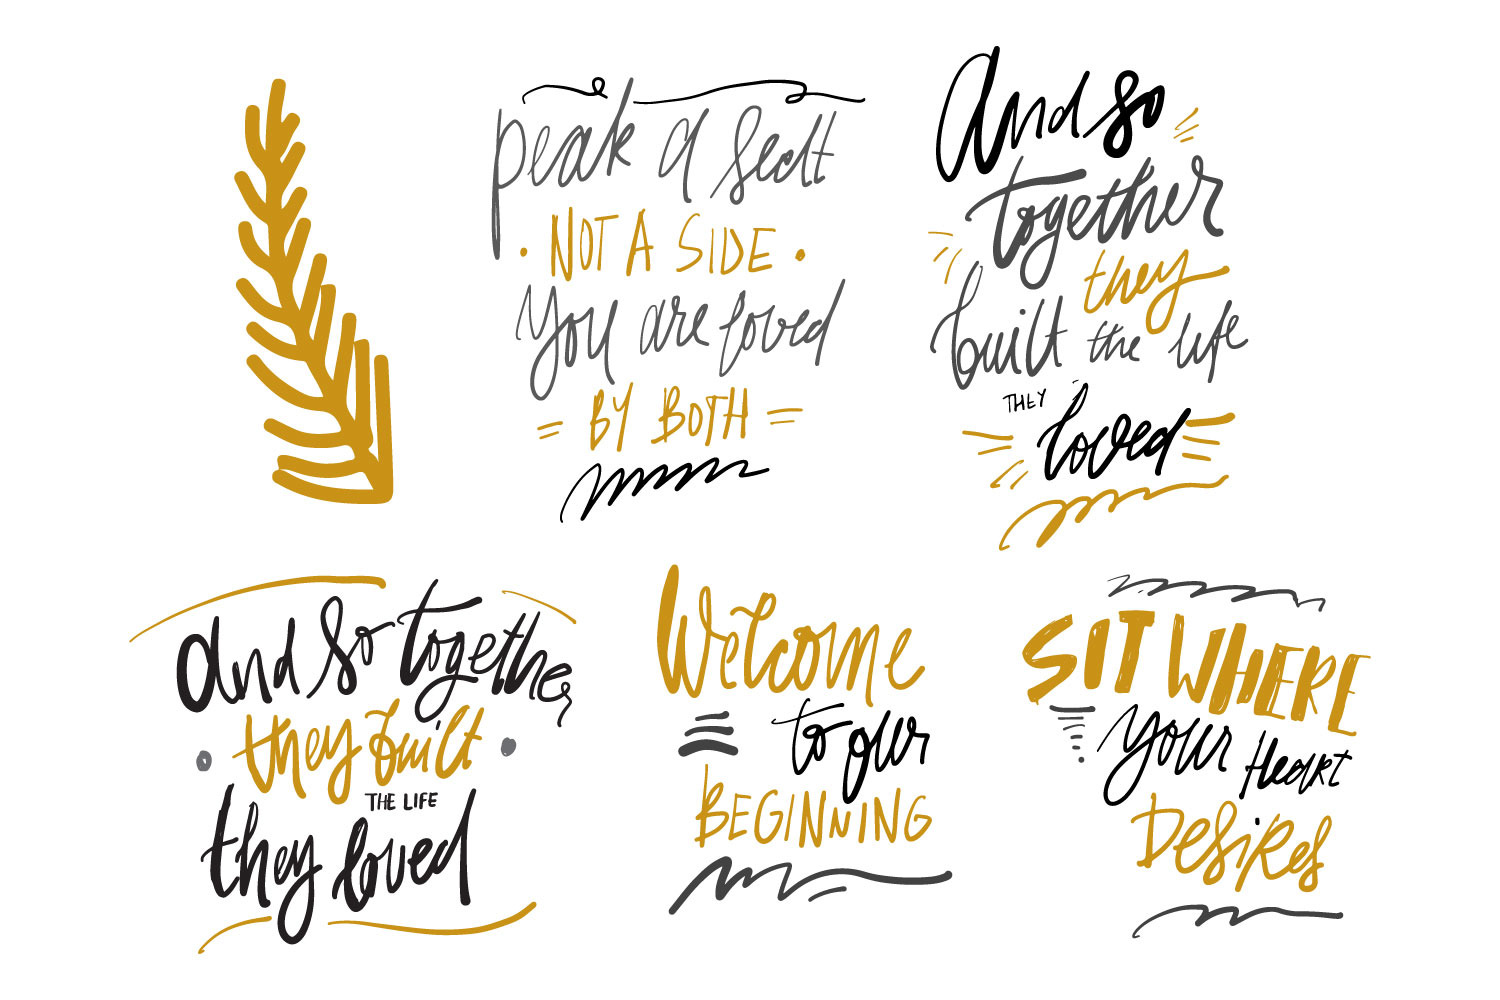 peak a seat
NOT A SIDE
You are loved
BY BOTH
And so
together
they
built the life
THEY
loved
And so together
they built
THE LIFE
they loved
Welcome
to our
BEGINNING
SIT WHERE
your Heart
Desires